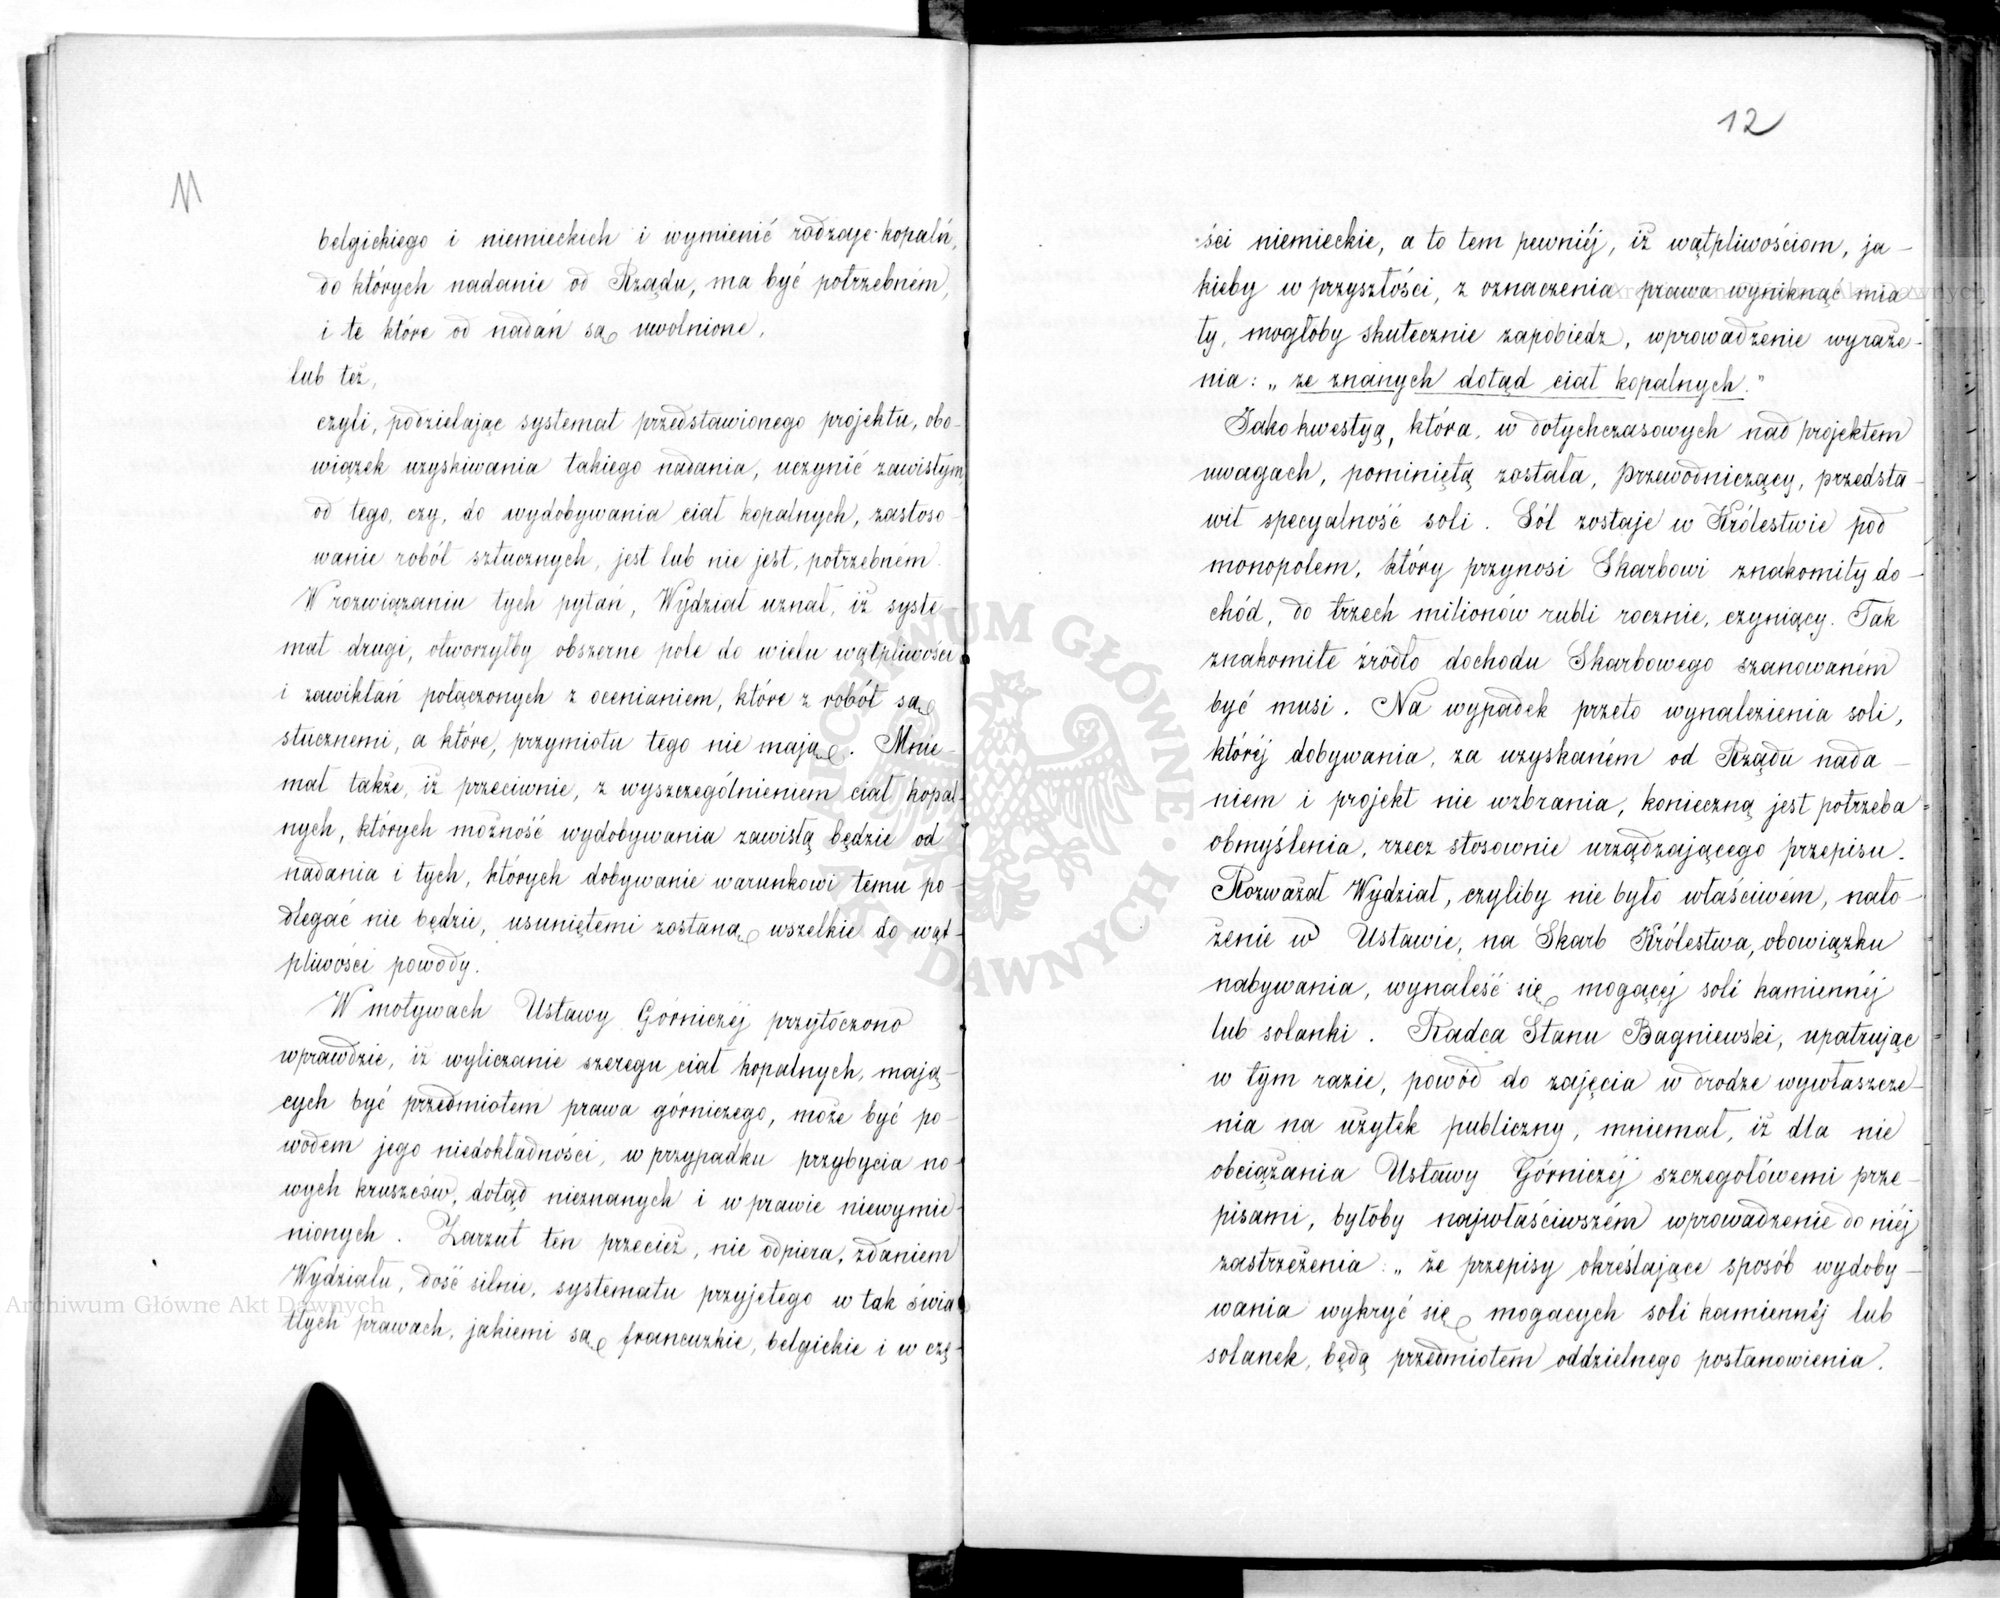 11
belgickiego i niemieckich i wymienić rodzaje kopalń,
do których nadanie od Rządu, ma być potrzebném,
i te które od nadań są uwolnione,
lub też,
czyli, podzielając systemat przedstawionego projektu, obo-
wiązek uzyskiwania takiego nadania, uczynić zawisłym
od tego, czy, do wydobywania ciał kopalnych, zastoso-
wanie robót sztucznych, jest lub nie jest, potrzebném.
W rozwiązaniu tych pytań, Wydział uznał, iż syste-
mat drugi, otworzyłby obszerne pole do wielu wątpliwości
i zawikłań połączonych z ocenianiem, które z robót są
stucznemi, a które, przymiotu tego nie mają. Mnie-
mał także, iż przeciwnie, z wyszczególnieniem ciał kopal-
nych, których możność wydobywania zawisłą będzie od
nadania i tych, których dobywanie warunkowi temu po-
dlegać nie będzie, usuniętemi zostaną wszelkie do wąt-
pliwości powody.
W motywach Ustawy Górniczéj przytoczono
wprawdzie, iż wyliczanie szeregu ciał kopalnych, mają-
cych być przedmiotem prawa górniczego, może być po-
wodem jego niedokładności, w przypadku przybycia no-
wych kruszców, dotąd nieznanych i w prawie niewymie-
nionych. Zarzut ten przecież, nie odpiera, zdaniem
Wydziału, dość silnie, systematu przyjętego w tak świa-
tłych prawach, jakiemi są francuzkie, belgickie i w czę-
12
ści niemieckie, a to tem pewniéj, iż wątpliwościom, ja-
kieby w przyszłości, z oznaczenia prawa wyniknąć mia-
ły, mogłoby skutecznie zapobiedz, wprowadzenie wyraże-
nia: „ze znanych dotąd ciał kopalnych."
Jako kwestyą, która, w dotychczasowych nad projektem
uwagach, pominiętą została, Przewodniczący, przedsta-
wił specyalność soli. Sól zostaje w Królestwie pod
monopolem, który przynosi Skarbowi znakomity do-
chód, do trzech milionów rubli rocznie, czyniący. Tak
znakomite źródło dochodu Skarbowego szanowaném
być musi. Na wypadek przeto wynalezienia soli,
któréj dobywania, za uzyskaném od Rządu nada-
niem i projekt nie wzbrania, konieczną jest potrzeba
obmyślenia, rzecz stosownie urządzającego przepisu.
Rozważał Wydział, czyliby nie było właściwém, nało-
żenie w Ustawie, na Skarb Królestwa, obowiązku
nabywania, wynaleść się mogącéj soli kamiennéj
lub solanki. Radca Stanu Bagniewski, upatrując
w tym razie, powód do zajęcia w drodze wywłaszcze-
nia na użytek publiczny, mniemał, iż dla nie
obciążania Ustawy Górniczéj szczegółowemi prze-
pisami, byłoby najwłaściwszém wprowadzenie do niéj
zastrzeżenia: „że przepisy określające sposób wydoby-
wania wykryć się mogących soli kamiennéj lub
solanek, będą przedmiotem oddzielnego postanowienia.
ARCHIWUM GŁÓWNE AKT DAWNYCH
Archiwum Główne Akt Dawnych
Archiwum Główne Akt Dawnych